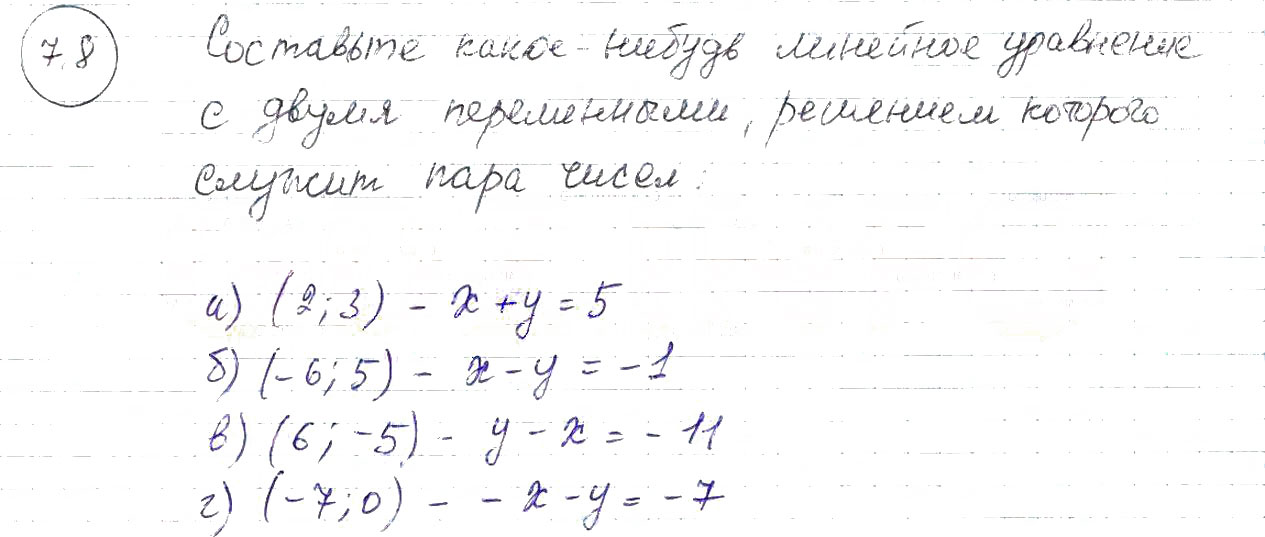 7.8
Составьте какое-нибудь линейное уравнение
с двумя переменными, решением которого
служит пара чисел:
а) (2; 3) - x + y = 5
б) (-6; 5) - x - y = -1
в) (6; -5) - y - x = -11
г) (-7; 0) - - x - y = -7